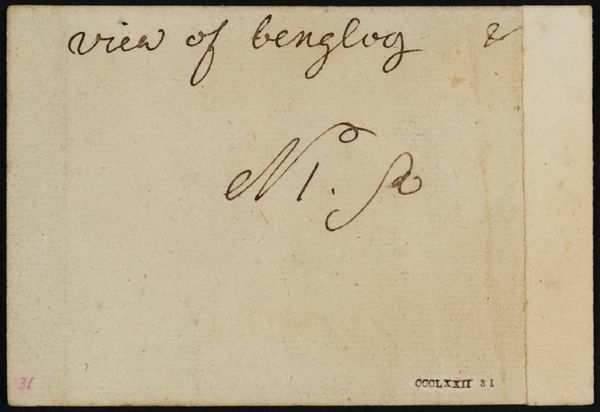 view of benglog &
No 1.
31
CCCLXXII 31